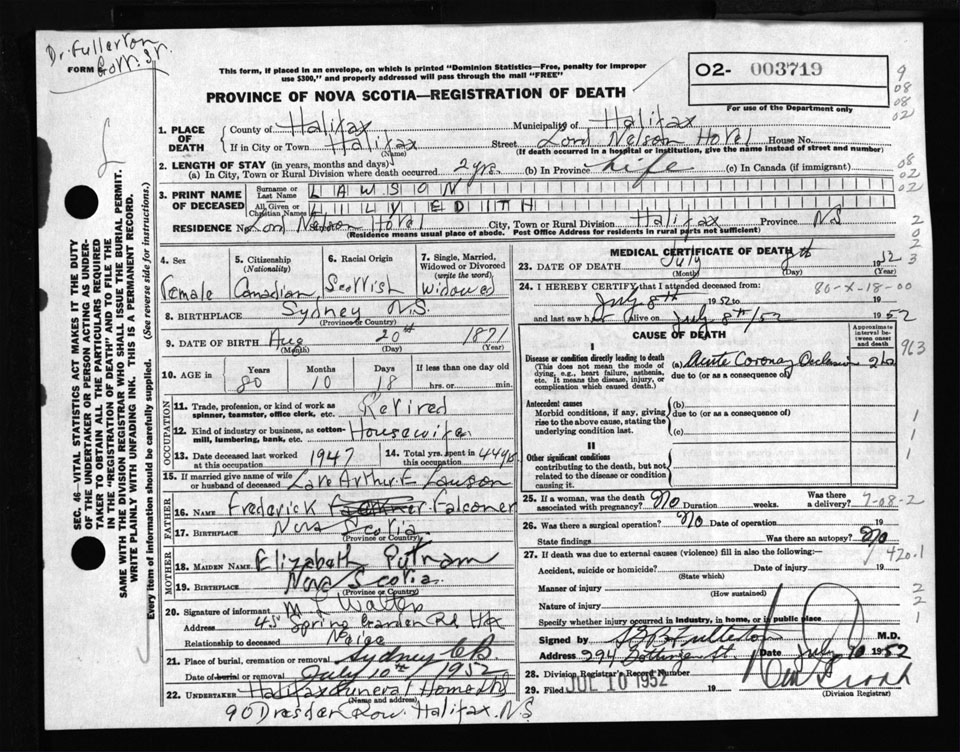 Dr. Fullerton
Gott. St.
FORM
This form, if placed in an envelope, on which is printed "Dominion Statistics—Free, penalty for improper
use $300," and properly addressed will pass through the mail "FREE"
PROVINCE OF NOVA SCOTIA—REGISTRATION OF DEATH
02- 003719
For use of the Department only
9
08
08
02
1. PLACE OF DEATH
County of Halifax Municipality of Halifax
If in City or Town Halifax Street Lord Nelson Hotel House No.
(Name) (If death occurred in a hospital or institution, give the name instead of street and number)
2. LENGTH OF STAY (in years, months and days)
(a) In City, Town or Rural Division where death occurred 2 yrs. (b) In Province Life (c) In Canada (if immigrant)
08
02
3. PRINT NAME OF DECEASED
Surname or Last Name LAWSON
All Given or Christian Names LILLY EDITH
RESIDENCE No. Lord Nelson Hotel City, Town or Rural Division Halifax Province NS
(Residence means usual place of abode. Post Office Address for residents in rural parts not sufficient)
2
02
3
SEC. 46—VITAL STATISTICS ACT MAKES IT THE DUTY
OF THE UNDERTAKER OR PERSON ACTING AS UNDER-
TAKER TO OBTAIN ALL THE PARTICULARS REQUIRED
IN THE "REGISTRATION OF DEATH" AND TO FILE THE
SAME WITH THE DIVISION REGISTRAR WHO SHALL ISSUE THE BURIAL PERMIT.
WRITE PLAINLY WITH UNFADING INK. THIS IS A PERMANENT RECORD.
Every item of information should be carefully supplied. (See reverse side for instructions.)
4. Sex Female
5. Citizenship (Nationality) Canadian
6. Racial Origin Scottish
7. Single, Married, Widowed or Divorced (write the word) Widowed
8. BIRTHPLACE Sydney N.S.
(Province or Country)
9. DATE OF BIRTH Aug 20th 1871
(Month) (Day) (Year)
10. AGE in Years Months Days If less than one day old
80 10 18 hrs. or min.
OCCUPATION
11. Trade, profession, or kind of work as
spinner, teamster, office clerk, etc. Retired
12. Kind of industry or business, as cotton-
mill, lumbering, bank, etc. Housewife
13. Date deceased last worked
at this occupation 1947
14. Total yrs. spent in
this occupation
15. If married give name of wife
or husband of deceased Late Arthur E Lawson
FATHER
16. Name Frederick Falconer
17. BIRTHPLACE Nova Scotia
(Province or Country)
MOTHER
18. MAIDEN NAME Elizabeth Putnam
19. BIRTHPLACE Nova Scotia
(Province or Country)
20. Signature of informant M L Walters
Address 45 Spring Garden Rd Hfx
Relationship to deceased Neice
21. Place of burial, cremation or removal Sydney CB
Date of burial or removal July 10th 1952
22. UNDERTAKER Halifax Funeral Home Ltd
(Name and address)
90 Dresden Row. Halifax. N.S
MEDICAL CERTIFICATE OF DEATH
23. DATE OF DEATH July 8th 1952
(Month) (Day) (Year)
24. I HEREBY CERTIFY that I attended deceased from 80-X-18-00
July 8th 1952 to 19
and last saw h alive on July 8th/52 1952
CAUSE OF DEATH
Approximate interval between onset and death
I
Disease or condition directly leading to death
(This does not mean the mode of
dying, e.g., heart failure, asthenia,
etc. It means the disease, injury, or
complication which caused death.)
(a) Acute Coronary Occlusion
due to (or as a consequence of)
963
Antecedent causes
Morbid conditions, if any, giving
rise to the above cause, stating the
underlying condition last.
(b)
due to (or as a consequence of)
(c)
1
1
1
II
Other significant conditions
contributing to the death, but not
related to the disease or condition
causing it.
25. If a woman, was the death
associated with pregnancy? No Duration weeks. Was there a delivery? 7-08-2
26. Was there a surgical operation? No Date of operation 19
State findings Was there an autopsy? No
420.1
27. If death was due to external causes (violence) fill in also the following:—
Accident, suicide or homicide? Date of injury 19
(State which)
Manner of injury
(How sustained)
Nature of injury
2
2
1
Specify whether injury occurred in industry, in home, or in public place
Signed by Fullerton M.D.
Address 294 Gottingen St. Date July 10 1952
28. Division Registrar's Record Number
29. Filed JUL 10 1952 19
(Division Registrar)